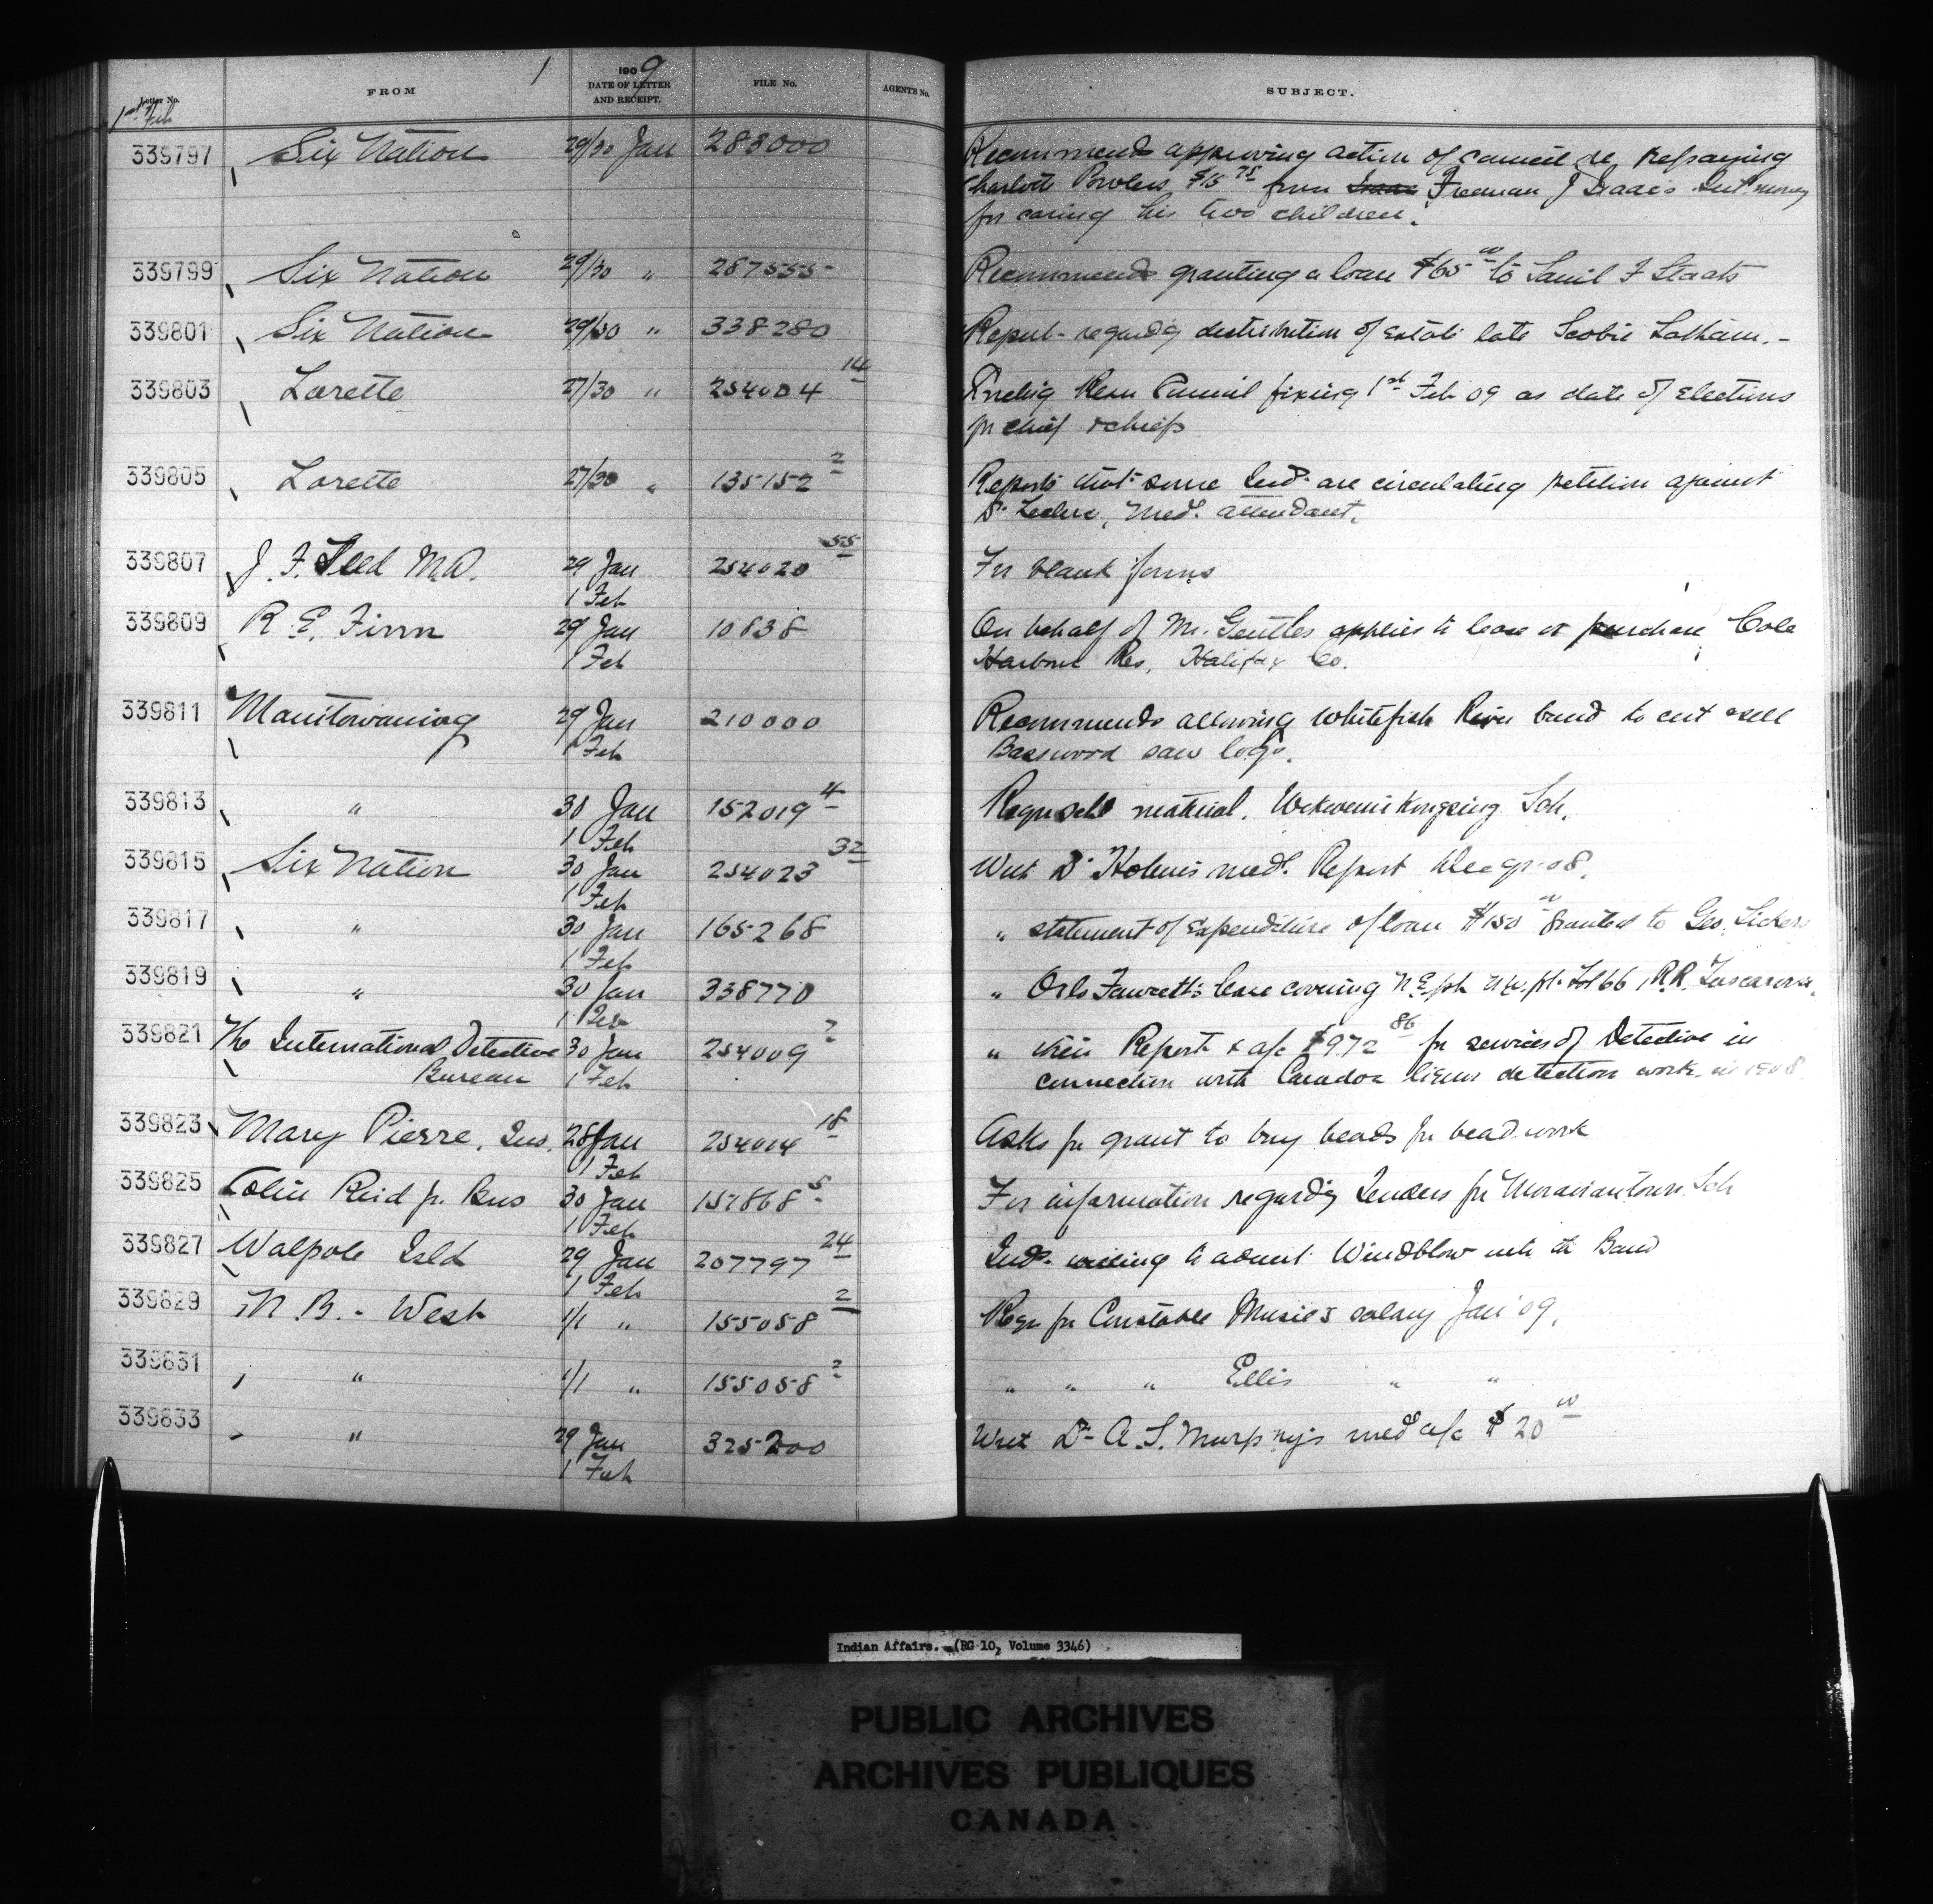 1
Letter No. FROM 1909 DATE OF LETTER AND RECEIPT. FILE No. AGENT'S No. SUBJECT.
1st Feb
339797 Six Nation 29/30 Jan 283000 Recommends approving action of council re repaying
Charlotte Powless $15 75 from Freeman J Isaac's Int money
for caring his two children.
339799 Six Nation 29/30 " 287555 Recommends granting a loan $65 00 to Saml F Staats
339801 Six Nation 29/30 " 338280 Report regardg distribution of Estate late Scobie Latham. -
339803 Lorette 27/30 " 254004 14 Encling Resn Council fixing 1st Feb 09 as date of Elections
for chief & chiefs
339805 Lorette 27/30 " 135152 2 Reports that some Inds are circulating petition against
Dr Leclerc, Med. attendant.
339807 J. F. M.D. 29 Jan 254020 55 For blank forms
1 Feb
339809 R E. Finn 29 Jan 10838 On behalf of Mr. Gentles applies to lease or purchase Cole
1 Feb Harbour Res, Halifax Co.
339811 Manitowaning 29 Jan 210000 Recommends allowing Whitefish River band to cut & sell
1 Feb Basswood saw logs.
339813 " 30 Jan 152019 4 Requ schl material. Wekwemikongsing Sch.
1 Feb
339815 Six Nation 30 Jan 254023 32 With Dr Holmes med. Report 08.
1 Feb
339817 " 30 Jan 165268 " statement of Expenditure of loan $150 00 granted to Geo. Lickers
1 Feb
339819 " 30 Jan 338770 " Orlo Fawcett's lease covering N.E. pt N.W. pt. Lot 66, R.R. Tuscarora.
1 Feb
339821 The International Detective 30 Jan 254009 2 " their Report & a/c $972 86 for services of Detective in
Bureau 1 Feb connection with Caradoc liquor detection work in 1908
339823 Mary Pierre, Ind. 28 Jan 254014 18 Asks for grant to buy beads for bead work
1 Feb
339825 Colin Reid pr. Bros 30 Jan 157868 5 For information regardg Tenders for Moraviantown Sch
1 Feb
339827 Walpole Isld 29 Jan 207797 24 Inds. willing to admit Windblow into the Band
1 Feb
339829 N. B. - West 1/1 " 155058 2 Requ for Constable salary Jan '09.
339831 " 1/1 " 155058 2 " " " Ellis " "
339833 " 29 Jan 325200 With Dr A. S. Murphy's med a/c $20 00
1 Feb
Indian Affairs. (RG 10, Volume 3346)
PUBLIC ARCHIVES
ARCHIVES PUBLIQUES
CANADA